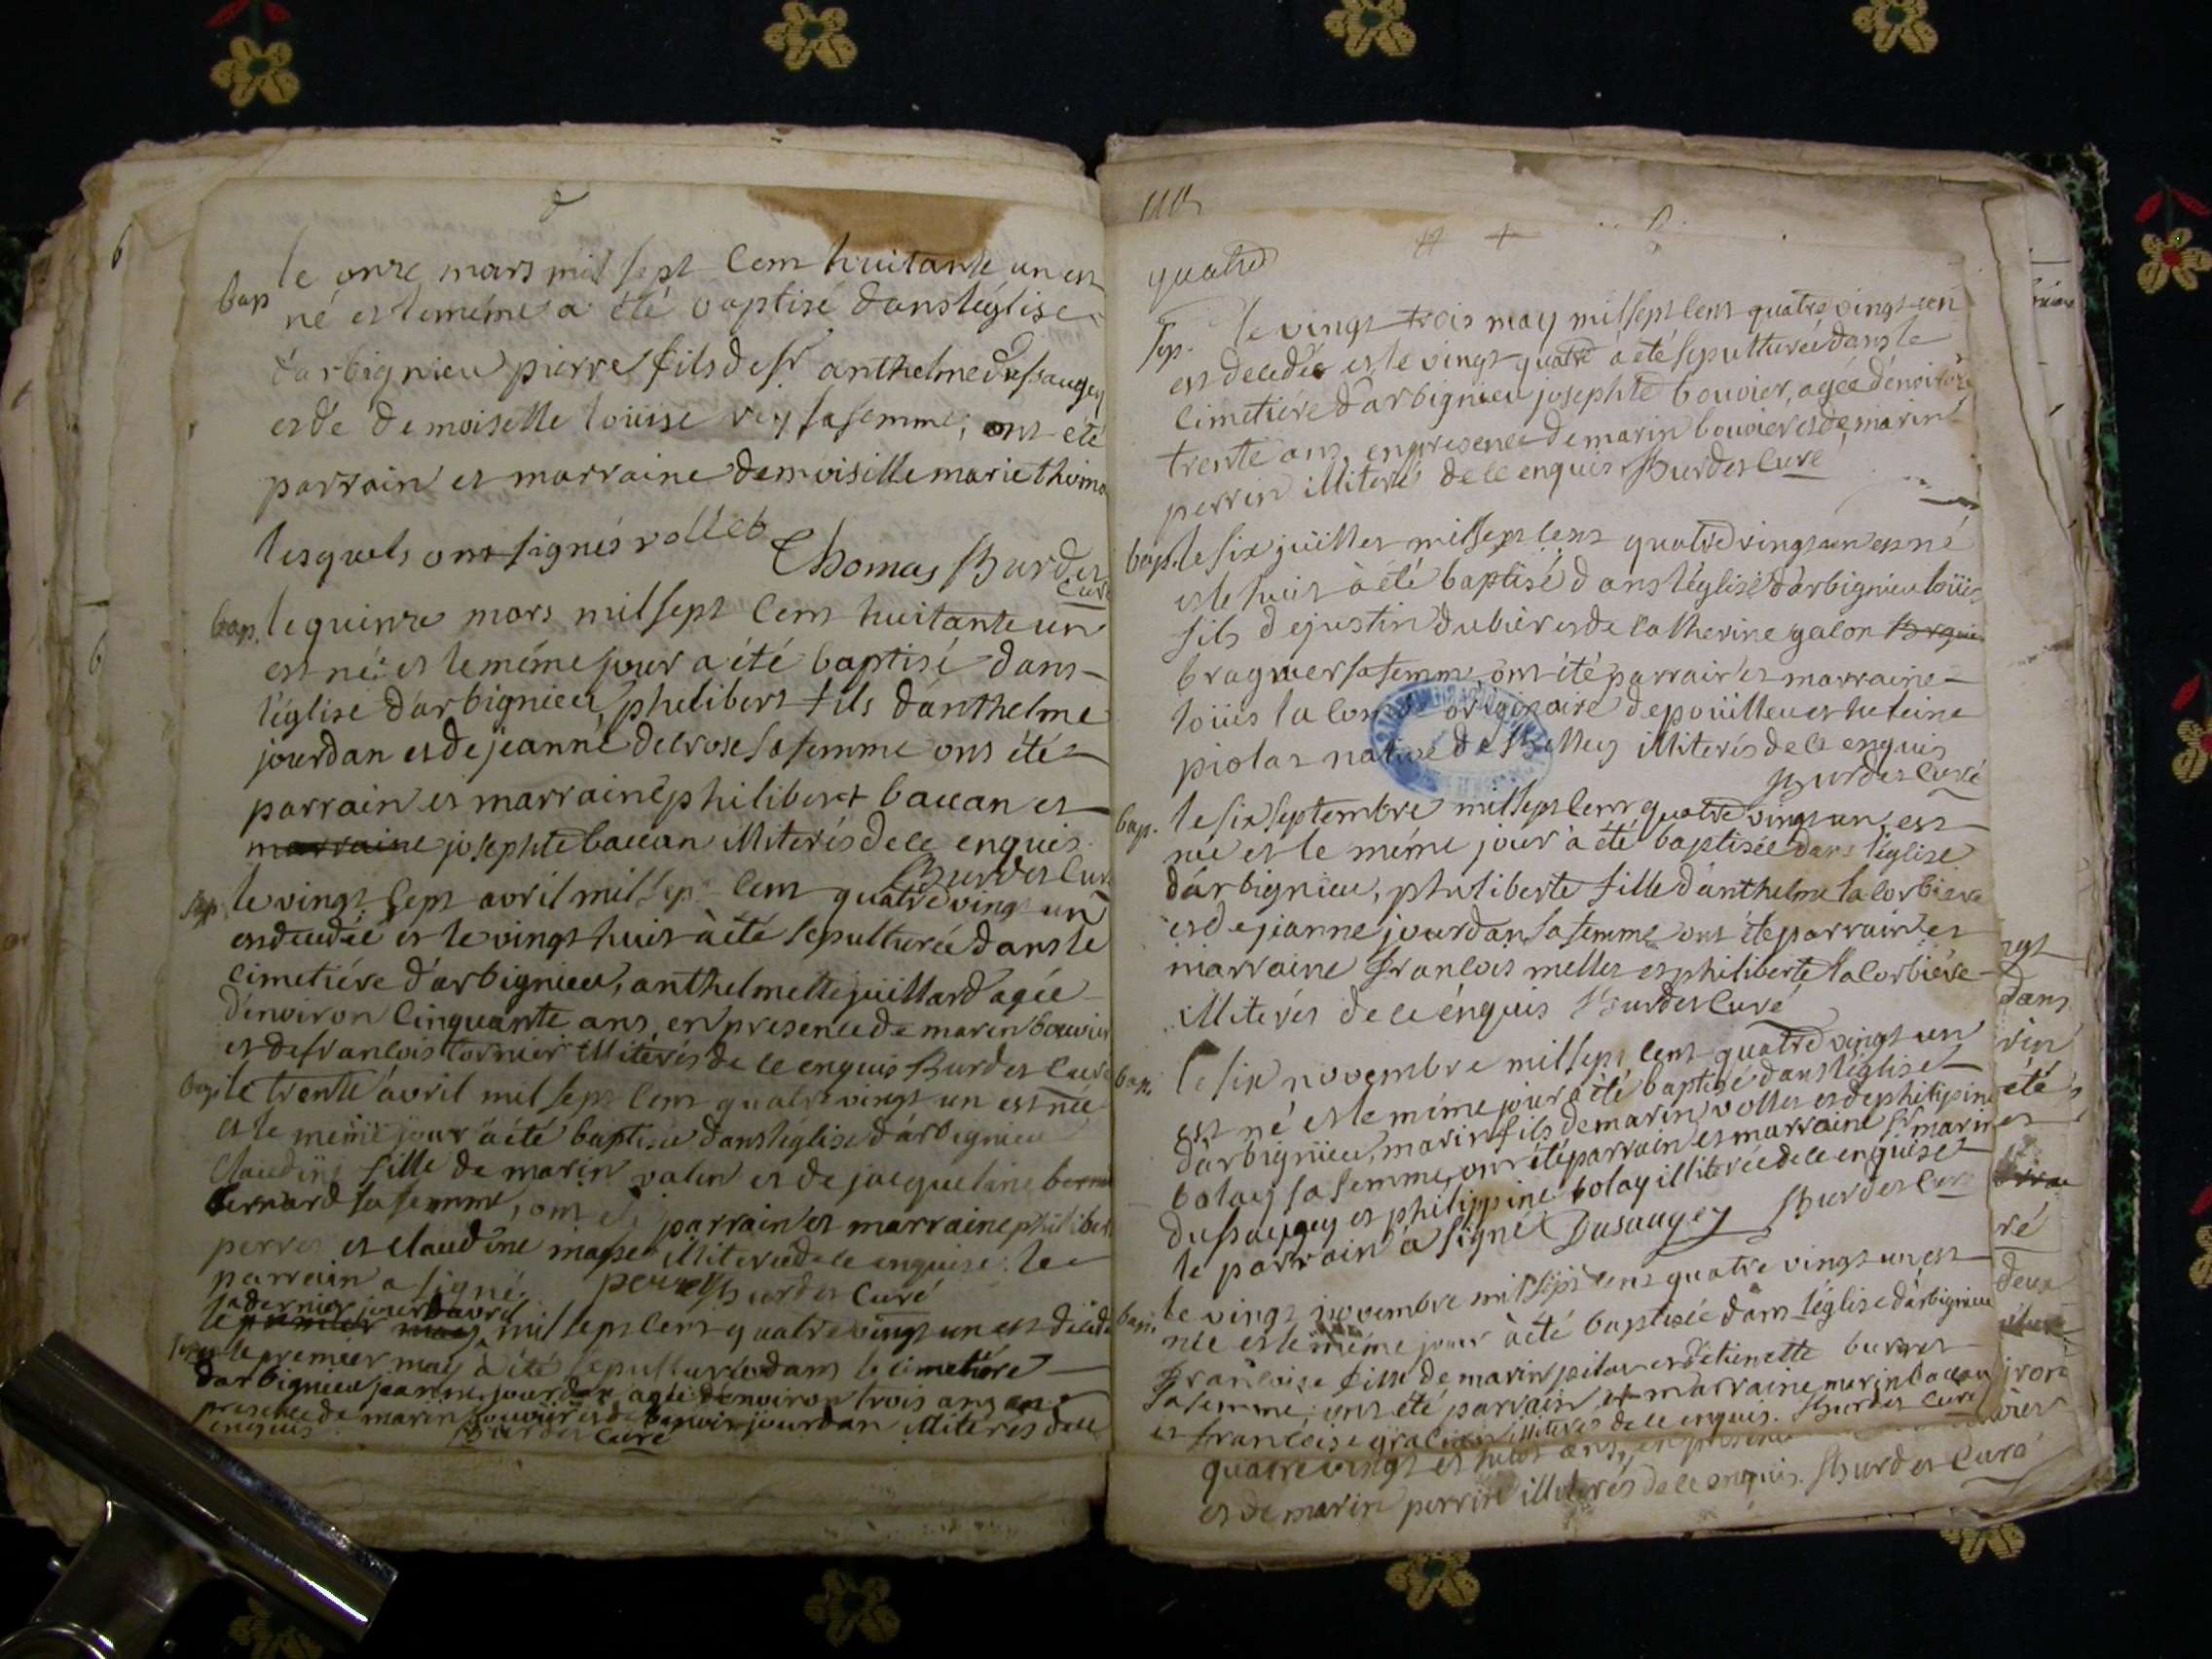 bap
le onze mars mil sept Cent huitante un est
né et le même a été baptisé dans l'église
d'arbignieu pierre fils de sr anthelme dussaugey
et de demoiselle loüise rey sa femme; ont été
parrain et marraine demoiselle marie thoma
lesquels ont signés rollet
Thomas Burdet
Curé
bap.
le quinze mars mil sept Cent huitante un
est né et le même jour a été baptisé dans
l'église d'arbignieu, philibert fils d'anthelme
jourdan et de jeanne decrose sa femme ont été
parrain et marraine philibert baccan et
marraine josephte baccan illiterés de ce enquis
Burdet Curé
sep
le vingt sept avril mil sept Cent quatre vingt un
est decedée et le vingt huit à été sepulturée dans le
cimetiére d'arbignieu, anthelmette juillard agée
d'environ Cinquante ans, en presence de marin bouvier
et de francois tornier illitérés de ce enquis Burdet Curé
bap
le trente avril mil sept Cent quatre vingt un est née
et le même jour à été baptisée dans l'église d'arbignieu
Claudine fille de marin valin et de jacqueline
bernard sa femme, ont été parrain et marraine philibert
perret et claudine masse illiterée de ce enquise le
parrain a signé. perret Burdet Curé
le dernier jour d'avril
le premier may mil sept Cent quatre vingt un est décédé
et le premier may à été sepulturée dans le cimetiére
d'arbignieu jeanne jourdan agée d'environ trois ans en
presence de marin bouvier et de benoit jourdan illiterés de ce
enquis Burdet Curé
quatre
Sep.
le vingt trois may mil sept Cent quatre vingt un
est decedée et le vingt quatre à été sepulturée dans le
Cimetiére d'arbignieu josephte bouvier, agée d'environ
trente ans, en presence de marin bouvier et de marin
perrin illiteré de ce enquis Burdet Curé
bap.
le six juillet mil sept Cent quatre vingt un est né
et le huit à été baptisé dans l'église d'arbignieu loüis
fils de justin dubier et de Catherine galon
braguier sa femme, ont été parrain et marraine
loüis la Combe originaire de poüilleu et
piolat native de Belley illiterés de ce enquis
Burdet Curé
bap.
le six septembre mil sept Cent quatre vingt un est
née et le même jour à été baptisée dans l'église
d'arbignieu, philiberte fille d'anthelme la Corbiére
et de jeanne jourdan sa femme ont été parrain et
marraine francois mellet et philiberte la Corbiére
illiterés de ce énquis Burdet Curé
bap.
le six novembre mil sept Cent quatre vingt un
est né et le même jour à été baptisé dans l'église
d'arbignieu, marin fils de marin vollet et de philipine
bolay sa femme, ont été parrain et marraine sr marin
dussaugey et philippine bolay illiterée de ce enquise
le parrain à signé Dusaugey Burdet Curé
bap.
le vingt novembre mil sept Cent quatre vingt un est
née et le même jour à été baptisée dans l'église d'arbignieu
francoise fille de marin pilat et d'etienette burret
sa femme, ont été parrain et marraine marin baccan
et francoise illiterés de ce enquis. Burdet Curé
quatre vingt et huit ans, en presence
et de marin perrin illiterés de ce enquis. Burdet Curé
dans
rin
été
et
ré
deux